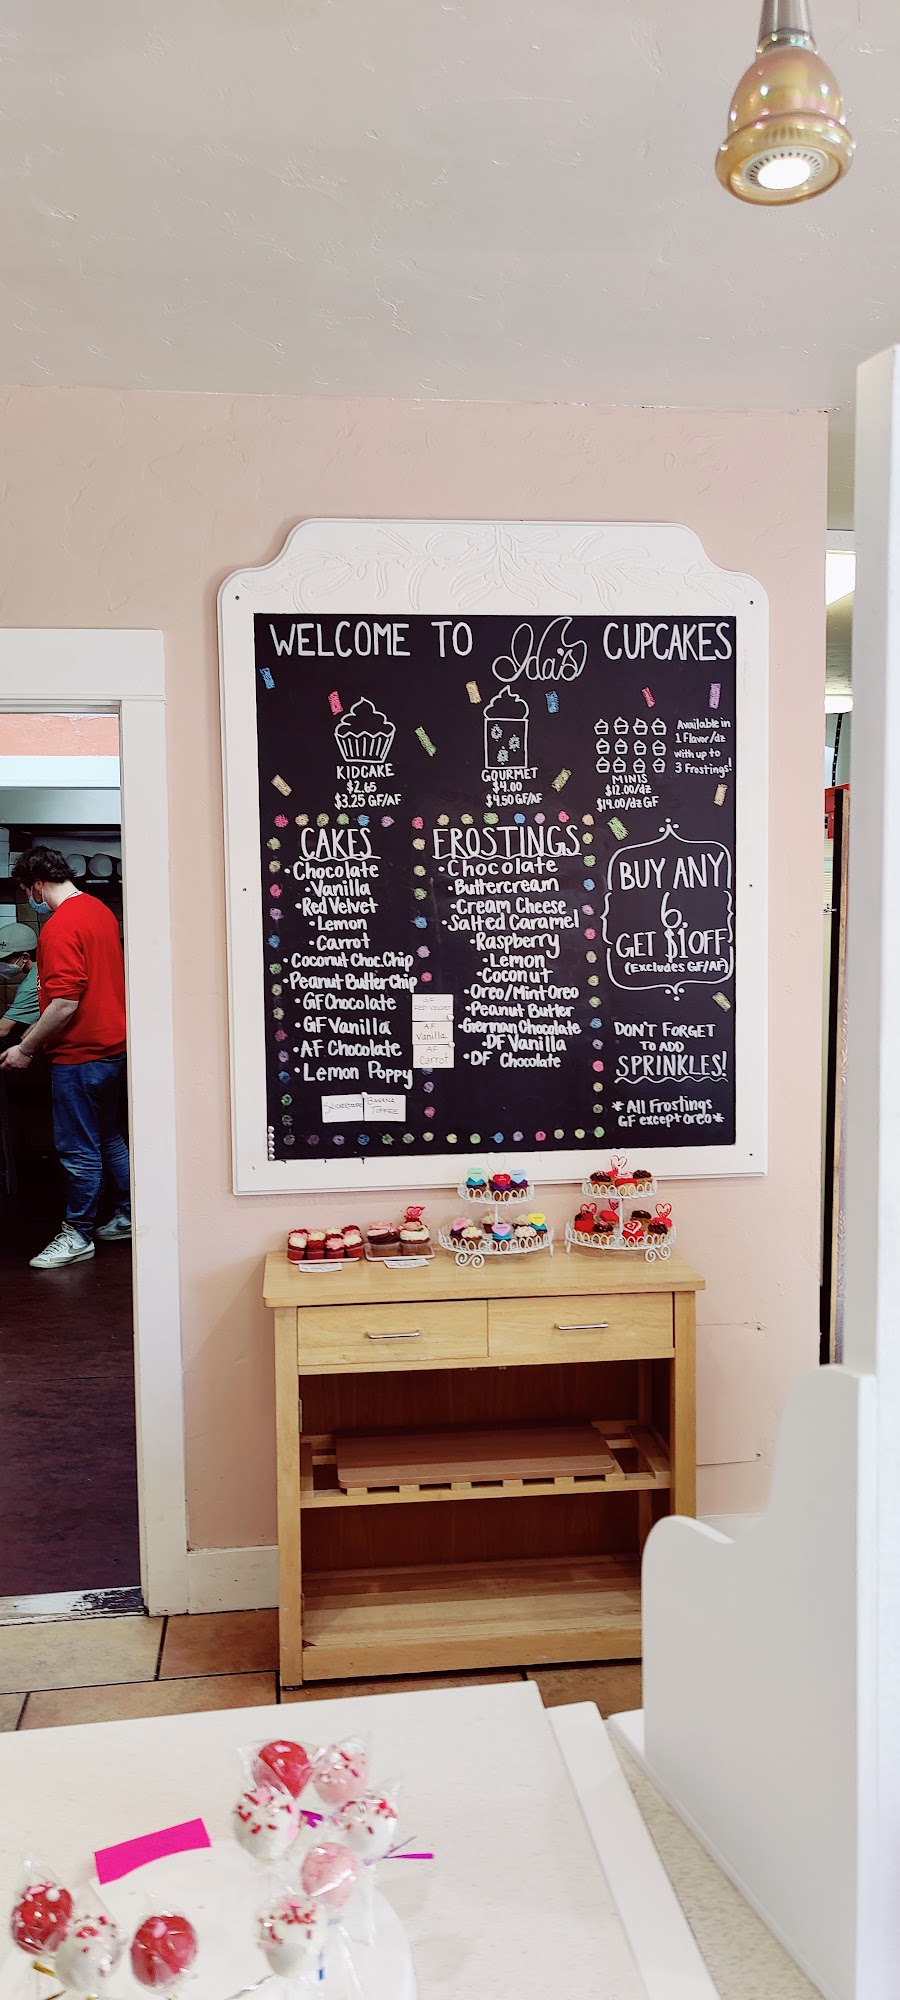 WELCOME TO Ida's CUPCAKES
KIDCAKE
$2.65
$3.25 GF/AF
GOURMET
$4.00
$4.50 GF/AF
MINIS
$12.00/dz
$14.00/dz GF
Available in
1 Flavor/dz
with up to
3 Frostings!
CAKES
•Chocolate
•Vanilla
•Red Velvet
•Lemon
•Carrot
•Coconut Choc.Chip
•Peanut Butter Chip
•GF Chocolate
•GF Vanilla
•AF Chocolate
•Lemon Poppy
BANANA
TOFFEE
RED VELVET
AF
Vanilla
AF
Carrot
FROSTINGS
•Chocolate
•Buttercream
•Cream Cheese
•Salted Caramel
•Raspberry
•Lemon
•Coconut
•Oreo/Mint Oreo
•Peanut Butter
•German Chocolate
•DF Vanilla
•DF Chocolate
BUY ANY
6,
GET $1 OFF
(Excludes GF/AF)
DON'T FORGET
TO ADD
SPRINKLES!
*All Frostings
GF except Oreo*